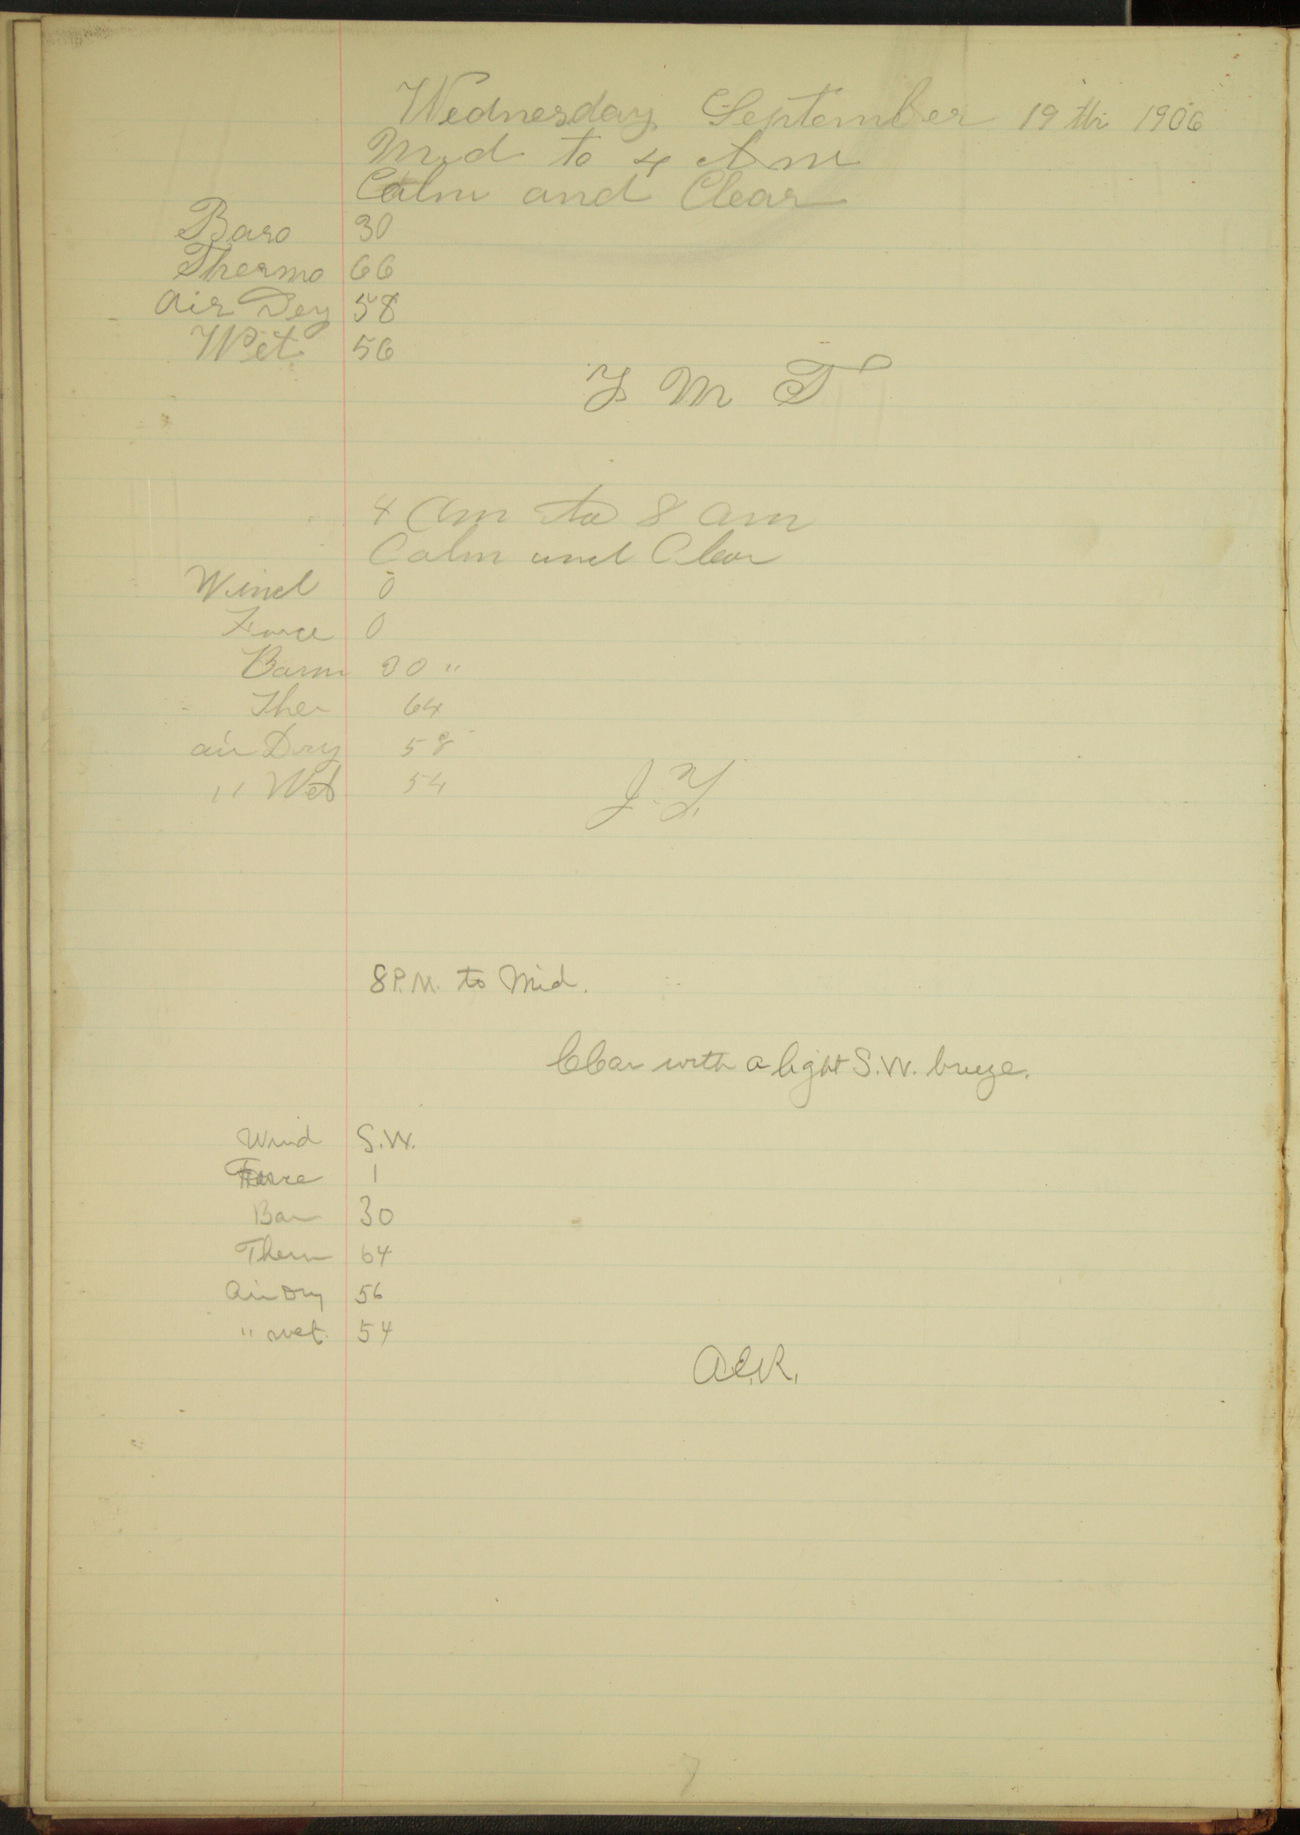 Wednesday September 19th 1906
Mid to 4 A m
Calm and Clear
Baro 30
Thermo 66
Air Dry 58
Wet 56
J M T
4 am to 8 am
Calm and Clear
Wind 0
Force 0
Barm 30 "
Ther 64
air Dry 58
" Wet 54
J. Y.
8 P.M. to Mid.
Clear with a light S.W. breeze.
Wind S.W.
Force 1
Bar 30
Therm 64
Air Dry 56
" wet. 54
A.E.R.
7